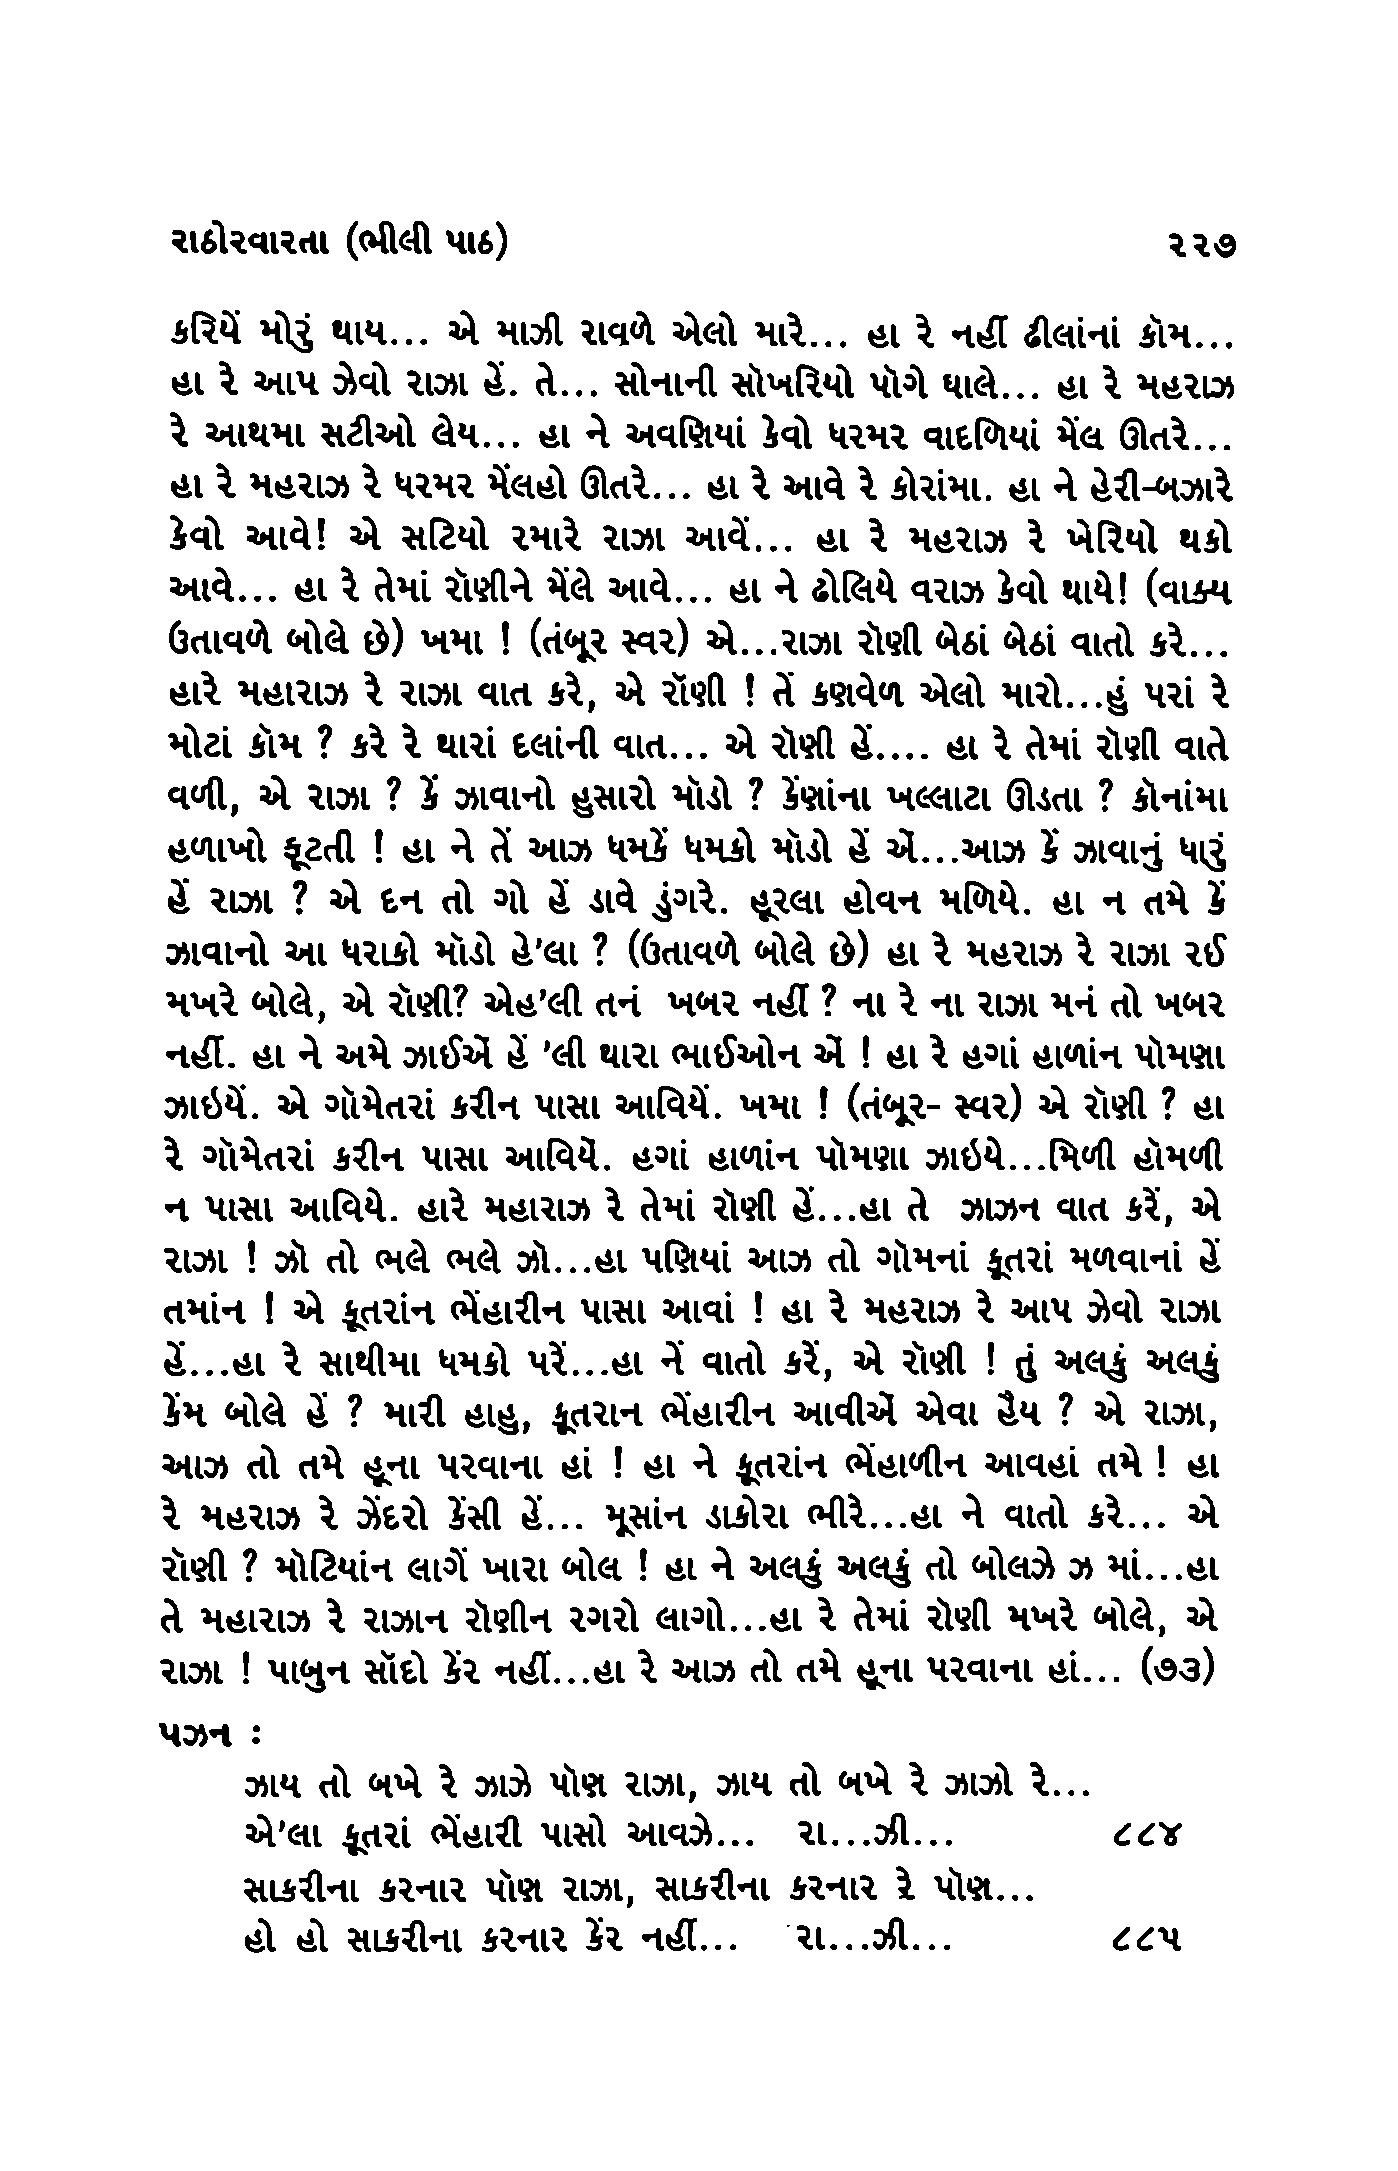 રાઠોરવારતા (ભીલી પાઠ) ૨૨૭
કરિયેં મોરું થાય... એ માઝી રાવળે એલો મારે... હા રે નહીં ઢીલાંનાં કૉમ...
હા રે આપ ઝેવો રાઝા હેં. તે... સોનાની સૉખરિયો પૉગે ઘાલે... હા રે મહરાઝ
રે આથમા સટીઓ લેય... હા ને અવણિયાં કેવો ધરમર વાદળિયાં મેંલ ઊતરે...
હા રે મહરાઝ રે ધરમર મેંલહો ઊતરે... હા રે આવે રે કોરાંમા. હા ને હેરી-બઝારે
કેવો આવે! એ સટિયો રમારે રાઝા આવેં... હા રે મહરાઝ રે ખેરિયો થકો
આવે... હા રે તેમાં રૉણીને મેંલે આવે... હા ને ઢોલિયે વરાઝ કેવો થાયે! (વાક્ય
ઉતાવળે બોલે છે) ખમા ! (તંબૂર સ્વર) એ...રાઝા રૉણી બેઠાં બેઠાં વાતો કરે...
હારે મહારાઝ રે રાઝા વાત કરે, એ રૉણી ! તેં કણવેળ એલો મારો...હું પરાં રે
મોટાં કૉમ ? કરે રે થારાં દલાંની વાત... એ રૉણી હેં.... હા રે તેમાં રૉણી વાતે
વળી, એ રાઝા ? કેં ઝાવાનો હુસારો મૉડો ? કેંણાંના ખલ્લાટા ઊડતા ? કૉનાંમા
હળાખો ફૂટતી ! હા ને તેં આઝ ધમકેં ધમકો મૉડો હેં એં...આઝ કેં ઝાવાનું ધારું
હેં રાઝા ? એ દન તો ગો હેં ડાવે ડુંગરે. હૂરલા હોવન મળિયે. હા ન તમે કેં
ઝાવાનો આ ધરાકો મૉડો હે'લા ? (ઉતાવળે બોલે છે) હા રે મહરાઝ રે રાઝા રઈ
મખરે બોલે, એ રૉણી? એહ'લી તનં ખબર નહીં ? ના રે ના રાઝા મનં તો ખબર
નહીં. હા ને અમે ઝાઈએં હેં 'લી થારા ભાઈઓન એં ! હા રે હગાં હાળાંન પૉમણા
ઝાઇયેં. એ ગૉમેતરાં કરીન પાસા આવિયેં. ખમા ! (તંબૂર- સ્વર) એ રૉણી ? હા
રે ગૉમેતરાં કરીન પાસા આવિયેં. હગાં હાળાંન પૉમણા ઝાઇયે...મિળી હૉમળી
ન પાસા આવિયે. હારે મહારાઝ રે તેમાં રૉણી હેં...હા તે ઝાઝન વાત કરેં, એ
રાઝા ! ઝૉ તો ભલે ભલે ઝૉ...હા પણિયાં આઝ તો ગૉમનાં કૂતરાં મળવાનાં હેં
તમાંન ! એ કૂતરાંન ભેંહારીન પાસા આવાં ! હા રે મહરાઝ રે આપ ઝેવો રાઝા
હેં...હા રે સાથીમા ધમકો પરેં...હા નેં વાતો કરેં, એ રૉણી ! તું અલકું અલકું
કેંમ બોલે હેં ? મારી હાહુ, કૂતરાન ભેંહારીન આવીએં એવા હૈય ? એ રાઝા,
આઝ તો તમે હૂના પરવાના હાં ! હા ને કૂતરાંન ભેંહાળીન આવહાં તમે ! હા
રે મહરાઝ રે ઝેંદરો કેંસી હેં... મૂસાંન ડાકોરા ભીરે...હા ને વાતો કરે... એ
રૉણી ? મૉટિયાંન લાગેં ખારા બોલ ! હા ને અલકું અલકું તો બોલઝે ઝ માં...હા
તે મહારાઝ રે રાઝાન રૉણીન રગરો લાગો...હા રે તેમાં રૉણી મખરે બોલે, એ
રાઝા ! પાબુન સૉદો કેંર નહીં...હા રે આઝ તો તમે હૂના પરવાના હાં... (૭૩)
પઝન :
ઝાય તો બખે રે ઝાઝે પૉણ રાઝા, ઝાય તો બખે રે ઝાઝો રે...
એ'લા કૂતરાં ભેંહારી પાસો આવઝે... રા...ઝી... ૮૮૪
સાકરીના કરનાર પૉણ રાઝા, સાકરીના કરનાર રે પૉણ...
હો હો સાકરીના કરનાર કેંર નહીં... રા...ઝી... ૮૮૫